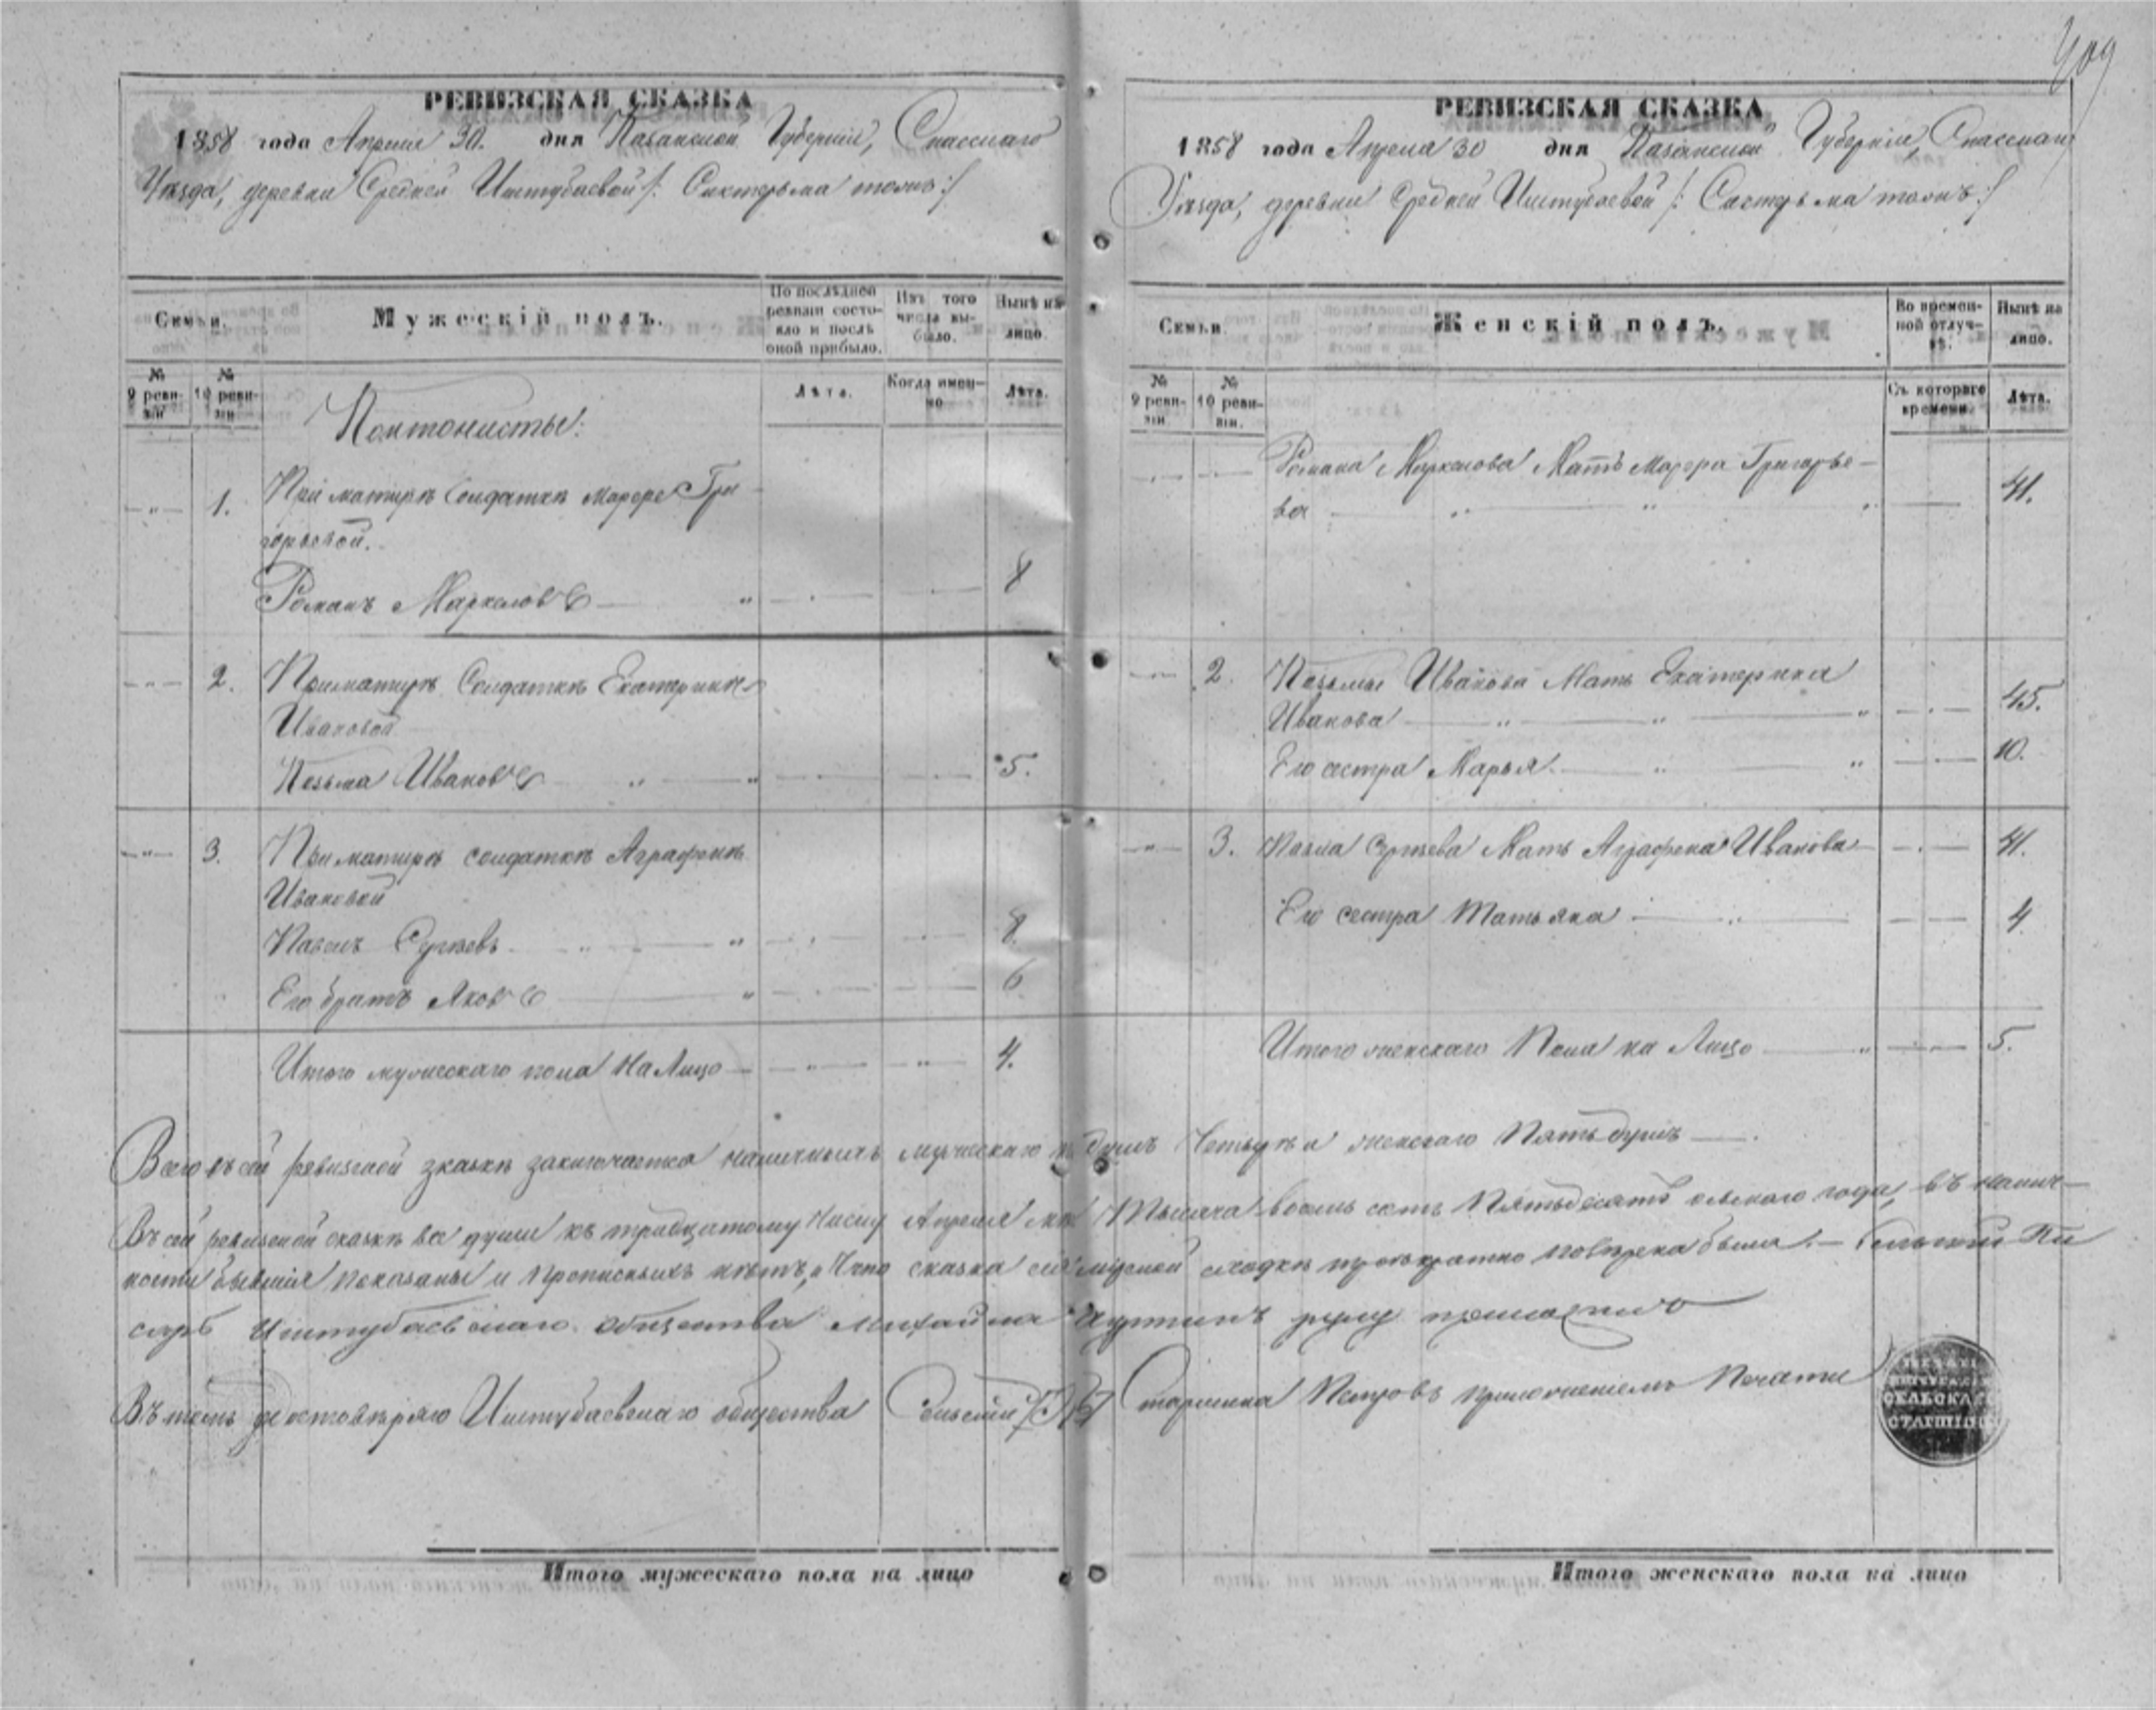 409
РЕВИЗСКАЯ СКАЗКА
1858 года Апреля 30. дня Казанской Губерніи, Спасскаго
Уѣзда, деревни Средней Иштубаевой /: Сиктерьма тожъ :/
Семьи.
Мужескій полъ.
По послѣдней ревизіи состояло и послѣ оной прибыло.
Изъ того числа выбыло.
Нынѣ на лицо.
№ 9 ревизіи
№ 10 ревизіи
Лѣта.
Когда именно
Лѣта.
Кантонисты:
1. При матерѣ Солдаткѣ Марѳре Гри-
горьевой.
Романъ Маркеловъ 8
2. При матерѣ Солдаткѣ Екатеринѣ
Ивановой
Козьма Ивановъ 5.
3. При матерѣ солдаткѣ Аграфенѣ
Ивановой
Павелъ Сергѣевъ 8
Его братъ Яковъ 6
Итого мужескаго пола На Лицо 4.
РЕВИЗСКАЯ СКАЗКА
1858 года Апреля 30 дня Казанской Губерніи, Спасскаго
Уѣзда, деревни Средней Иштубаевой /: Сиктерьма тожъ :/
Семьи
Женскій полъ.
Во временной отлучкѣ.
Нынѣ на лицо.
№ 9 ревизіи.
№ 10 ревизіи.
Съ котораго времени.
Лѣта.
Романа Маркелова Мать Григорье-
ва 41.
2. Козьмы Иванова Мать Екатерина
Иванова 45.
Его сестра Марья 10.
3. Павла Сергѣева Мать Аграфена Иванова 41.
Его сестра Татьяна 4
Итого женскаго Пола на Лицо 5.
Всего въ сей ревизской зказкѣ заключается наличныхъ мужескаго душъ Четыре и женскаго Пять душъ
Въ сей ревизской сказкѣ все души къ тридцатому Числу Апреля Тысяча восемь сотъ Пятьдесятъ осьмаго года, въ налич-
ности бывшія показаны и прописныхъ нѣтъ, и Что сказка сія мірской сходкѣ троекратно поверена была. — Сельский Пи
сарь Иштубаевскаго общества Михайла руку приложилъ
Въ томъ удостовѣряю Иштубаевскаго общества Сельскій Старшина Петровъ приложеніемъ Печати
СЕЛЬСКАГО
СТАРШИНЫ
Итого мужескаго пола на лицо
Итого женскаго пола на лицо